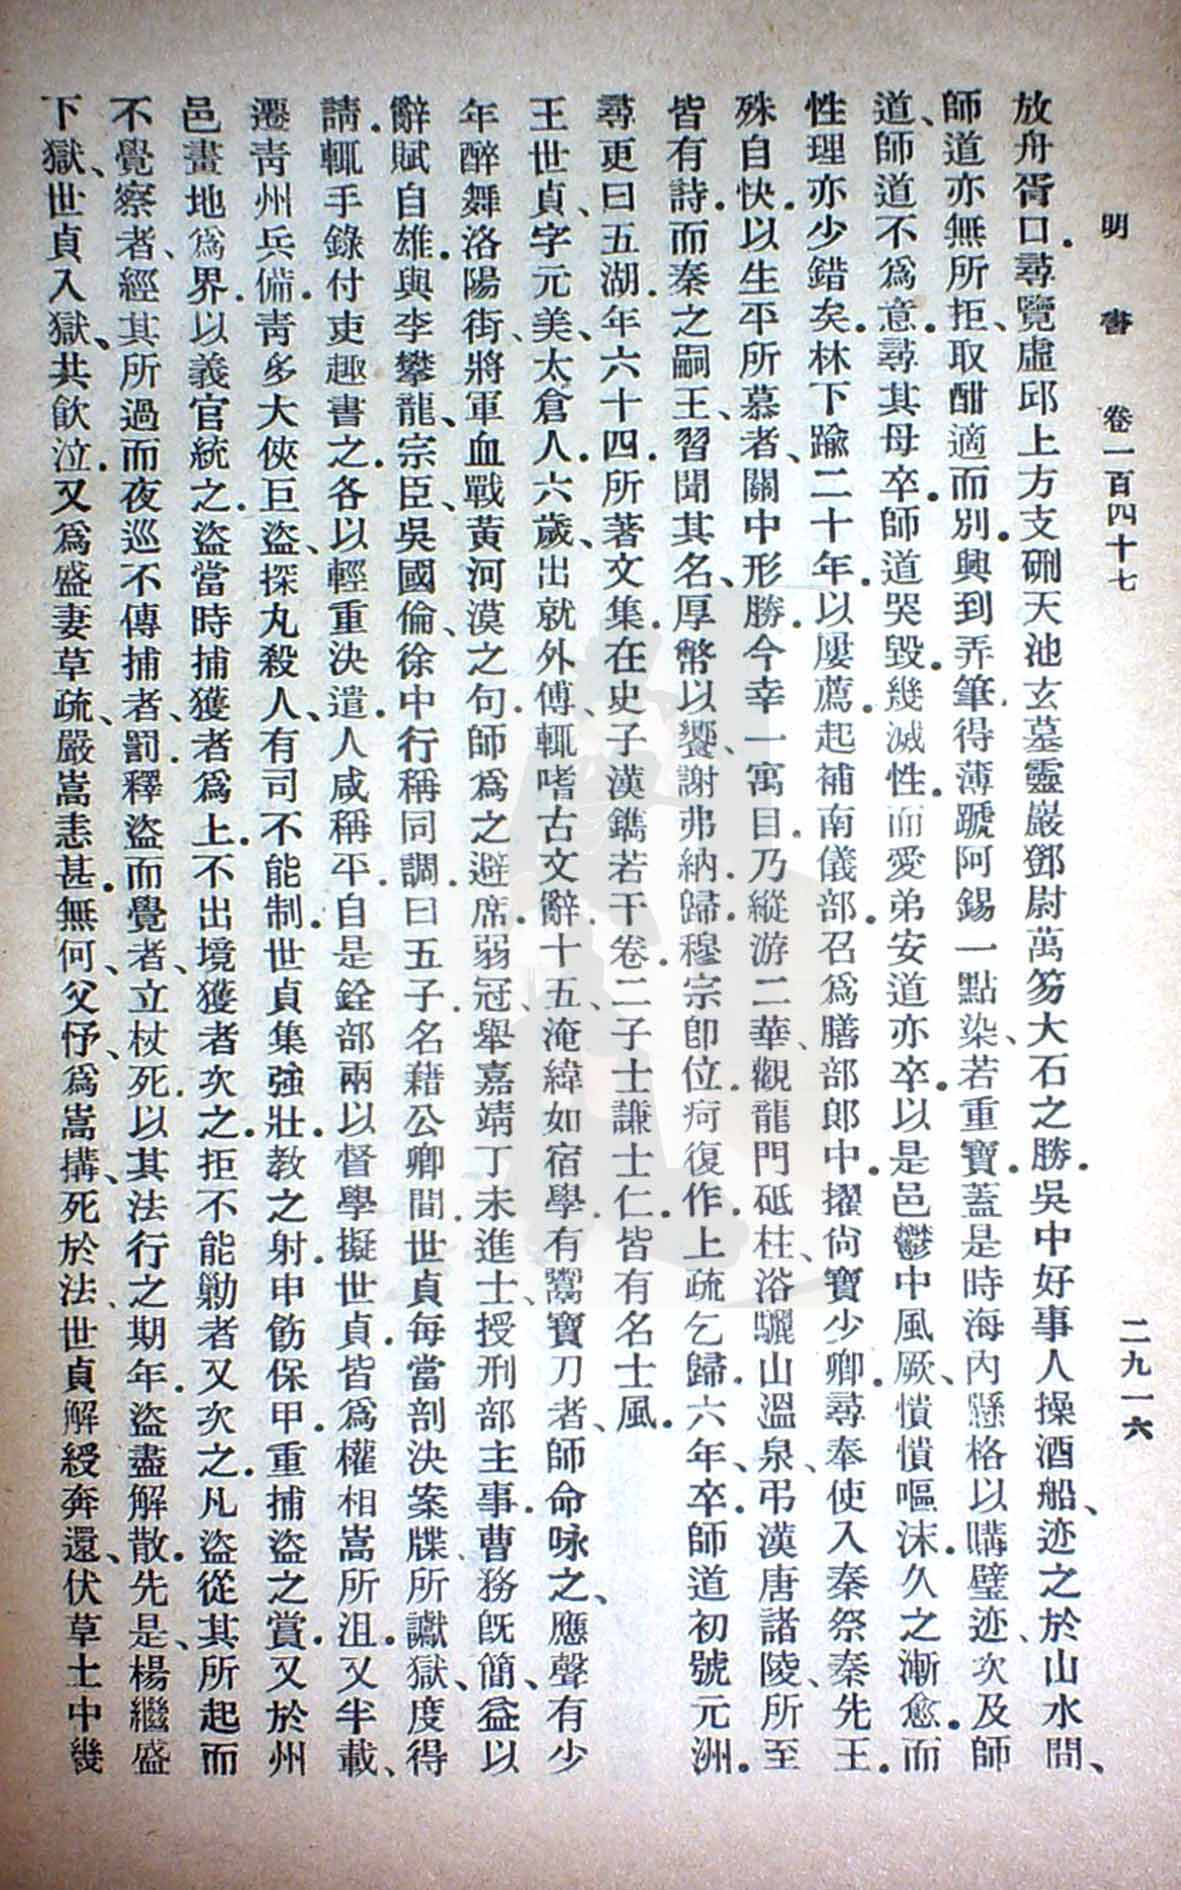 明書 卷一百四十七 二九一六
放舟胥口.尋覽虛邱上方支硎天池玄墓靈巖鄧尉萬笏大石之勝.吳中好事人操酒船、迹之於山水間、
師道亦無所拒、取酣適而別.興到弄筆.得薄蹏阿錫一點染、若重寶.蓋是時海內懸格以購璧迹、次及師
道、師道不爲意.尋其母卒.師道哭毀.幾滅性.而愛弟安道亦卒.以是邑鬱中風厥、憒憒嘔沫.久之漸愈.而
性理亦少錯矣.林下踰二十年.以屢薦.起補南儀部.召爲膳部郎中.擢尙寶少卿.尋奉使入秦祭秦先王.
殊自快.以生平所慕者、關中形勝.今幸一寓目.乃縱游二華、觀龍門砥柱、浴驪山溫泉、弔漢唐諸陵、所至
皆有詩.而秦之嗣王、習聞其名、厚幣以饗、謝弗納.歸.穆宗卽位.疴復作.上疏乞歸.六年、卒.師道初號元洲.
尋更曰五湖.年六十四.所著文集.在史子漢鐫若干卷.二子士謙士仁.皆有名士風.
王世貞、字元美、太倉人.六歲、出就外傅、輒嗜古文辭.十五、淹緯如宿學.有鬻寶刀者、師命咏之、應聲有少
年醉舞洛陽街、將軍血戰黃河漠之句.師爲之避席.弱冠、舉嘉靖丁未進士、授刑部主事.曹務旣簡、益以
辭賦自雄.與李攀龍、宗臣、吳國倫、徐中行稱同調.曰五子.名藉公卿間.世貞每當剖決案牒、所讞獄、度得
請.輒手錄付吏趣書之.各以輕重決遣.人咸稱平.自是銓部兩以督學擬世貞.皆爲權相嵩所沮.又半載、
遷靑州兵備.靑多大俠巨盜、探丸殺人、有司不能制.世貞集強壯.教之射.申飭保甲.重捕盜之賞.又於州
邑畫地爲界.以義官統之.盜當時捕獲者爲上.不出境獲者次之.拒不能勦者又次之.凡盜從其所起而
不覺察者、經其所過而夜巡不傳捕者、罰.釋盜而覺者、立杖死.以其法行之期年.盜盡解散.先是、楊繼盛
下獄、世貞入獄、共飮泣.又爲盛妻草疏、嚴嵩恚甚.無何、父忬、爲嵩搆、死於法、世貞解綬奔還、伏草土中幾